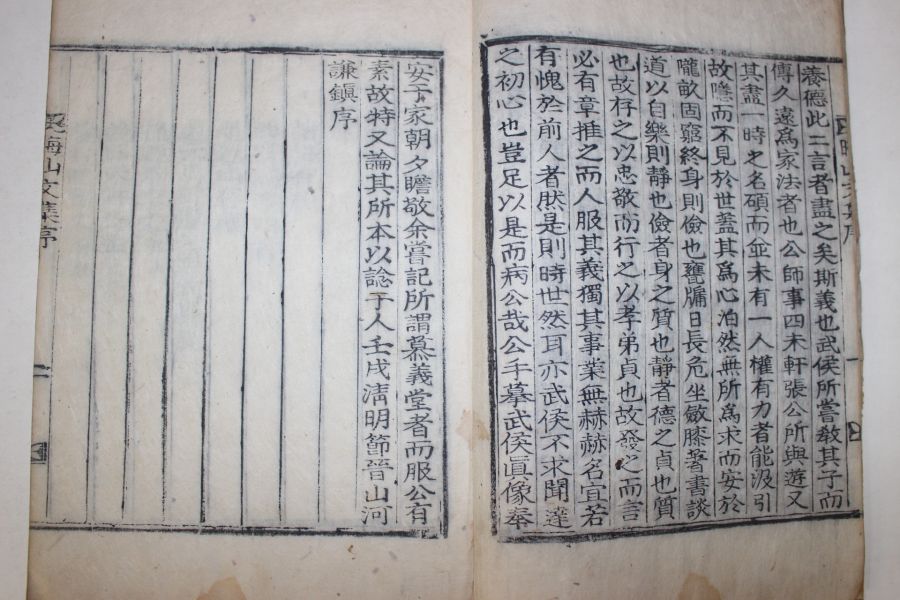 養德此二言者盡之矣斯義也武侯所嘗教其子而
傳久遠爲家法者也公師事四未軒張公所與遊又
其盡一時之名碩而並未有一人權有力者能汲引
故隱而不見於世蓋其爲心泊然無所爲求而安於
隴畝固窮終身則儉也甕牖日長危坐斂膝著書談
道以自樂則靜也儉者身之質也靜者德之貞也質
也故存之以忠敬而行之以孝弟貞也故發之而言
必有章推之而人服其義獨其事業無赫赫名宜若
有愧於前人者然是則時世然耳亦武侯不求聞達
之初心也豈足以是而病公哉公手摹武侯眞像奉
安于家朝夕瞻敬余嘗記所謂慕義堂者而服公有
素故特又論其所本以諗于人壬戌淸明節晉山河
謙鎭序
梅山文集序